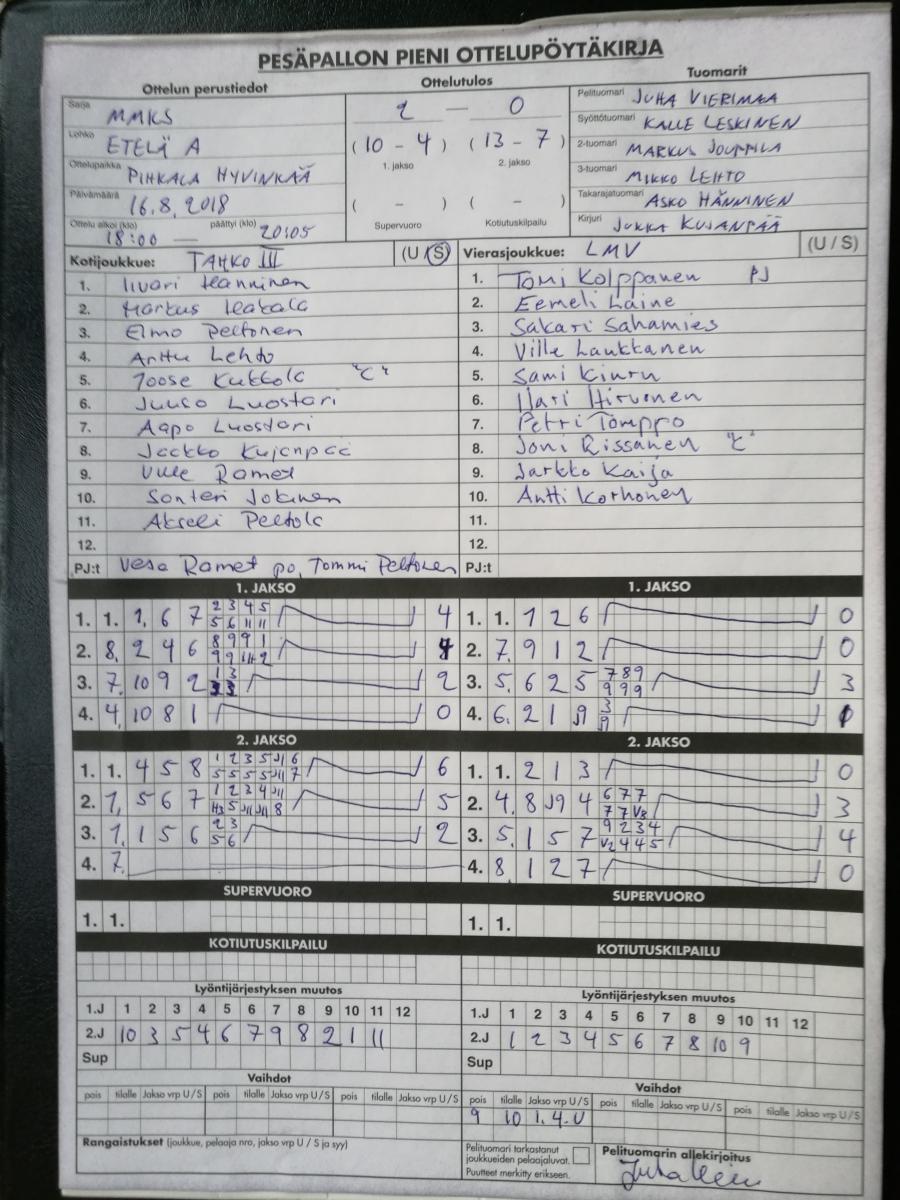 PESÄPALLON PIENI OTTELUPÖYTÄKIRJA
Ottelun perustiedot
Sarja MMKS
Lohko ETELÄ A
Ottelupaikka PIHKALA HYVINKÄÄ
Päivämäärä 16.8.2018
Ottelu alkoi (klo) 18:00 — päättyi (klo) 20:05
Ottelutulos
2 — 0
(10 - 4) (13 - 7)
1. jakso 2. jakso
( - ) ( - )
Supervuoro Kotiutuskilpailu
Tuomarit
Pelituomari JUHA VIERIMAA
Syöttötuomari KALLE LESKINEN
2-tuomari MARKUS JOUPPILA
3-tuomari MIKKO LEHTO
Takarajatuomari ASKO HÄNNINEN
Kirjuri JUKKA KUJANPÄÄ
Kotijoukkue: TAHKO III (U / S)
1. Iivari Hanninen
2. Markus
3. Elmo Peltonen
4. Anttu Lehto
5. Joose Kukkola "C"
6. Juuso Luostari
7. Aapo Luostari
8. Jaakko Kujanpää
9. Ville Ramet
10. Santeri Jokinen
11. Akseli Peltola
12.
PJ:t Vesa Ramet po, Tommi Peltonen
Vierasjoukkue: LMV (U / S)
1. Tomi Kolppanen PJ
2. Eemeli Laine
3. Sakari Sahamies
4. Ville Laukkanen
5. Sami Kiuru
6. Ilari Hirvonen
7. Petri Tomppo
8. Joni Rissanen "C"
9. Jarkko Kaija
10. Antti Korhonen
11.
12.
PJ:t
1. JAKSO
1. 1. 1, 6 7 2 3 4 5 4
5 6 11 11
2. 8, 2 4 6 8 9 9 1 4
3. 7, 10 9 2 1 3 2
4. 4, 10 8 1 0
2. JAKSO
1. 1. 4 5 8 1 2 3 5 J11 6 6
5 5 5 5 J11 7
2. 1, 5 6 7 1 2 3 4 J11 5
H3 5 J11 J11 8
3. 1, 1 5 6 2 3 2
5 6
4. 7.
SUPERVUORO
1. 1.
KOTIUTUSKILPAILU
Lyöntijärjestyksen muutos
1.J 1 2 3 4 5 6 7 8 9 10 11 12
2.J 10 3 5 4 6 7 9 8 2 1 11
Sup
Vaihdot
pois tilalle Jakso vrp U / S pois tilalle Jakso vrp U / S pois tilalle Jakso vrp U / S
Rangaistukset (joukkue, pelaaja nro, jakso vrp U / S ja syy)
1. JAKSO
1. 1. 1 2 6 0
2. 7, 9 1 2 0
3. 5, 6 2 5 7 8 9 3
9 9 9
4. 6, 2 1 J9 3 1
J9
2. JAKSO
1. 1. 2 1 3 0
2. 4, 8 J9 4 6 7 7 3
7 7 V8
3. 5, 1 5 7 9 2 3 4 4
V2 4 4 5
4. 8, 1 2 7 0
SUPERVUORO
1. 1.
KOTIUTUSKILPAILU
Lyöntijärjestyksen muutos
1.J 1 2 3 4 5 6 7 8 9 10 11 12
2.J 1 2 3 4 5 6 7 8 10 9
Sup
Vaihdot
pois tilalle Jakso vrp U / S pois tilalle Jakso vrp U / S pois tilalle Jakso vrp U / S
9 10 1.4.U
Pelituomari tarkastanut
joukkueiden pelaajaluvat.
Puutteet merkitty erikseen.
Pelituomarin allekirjoitus